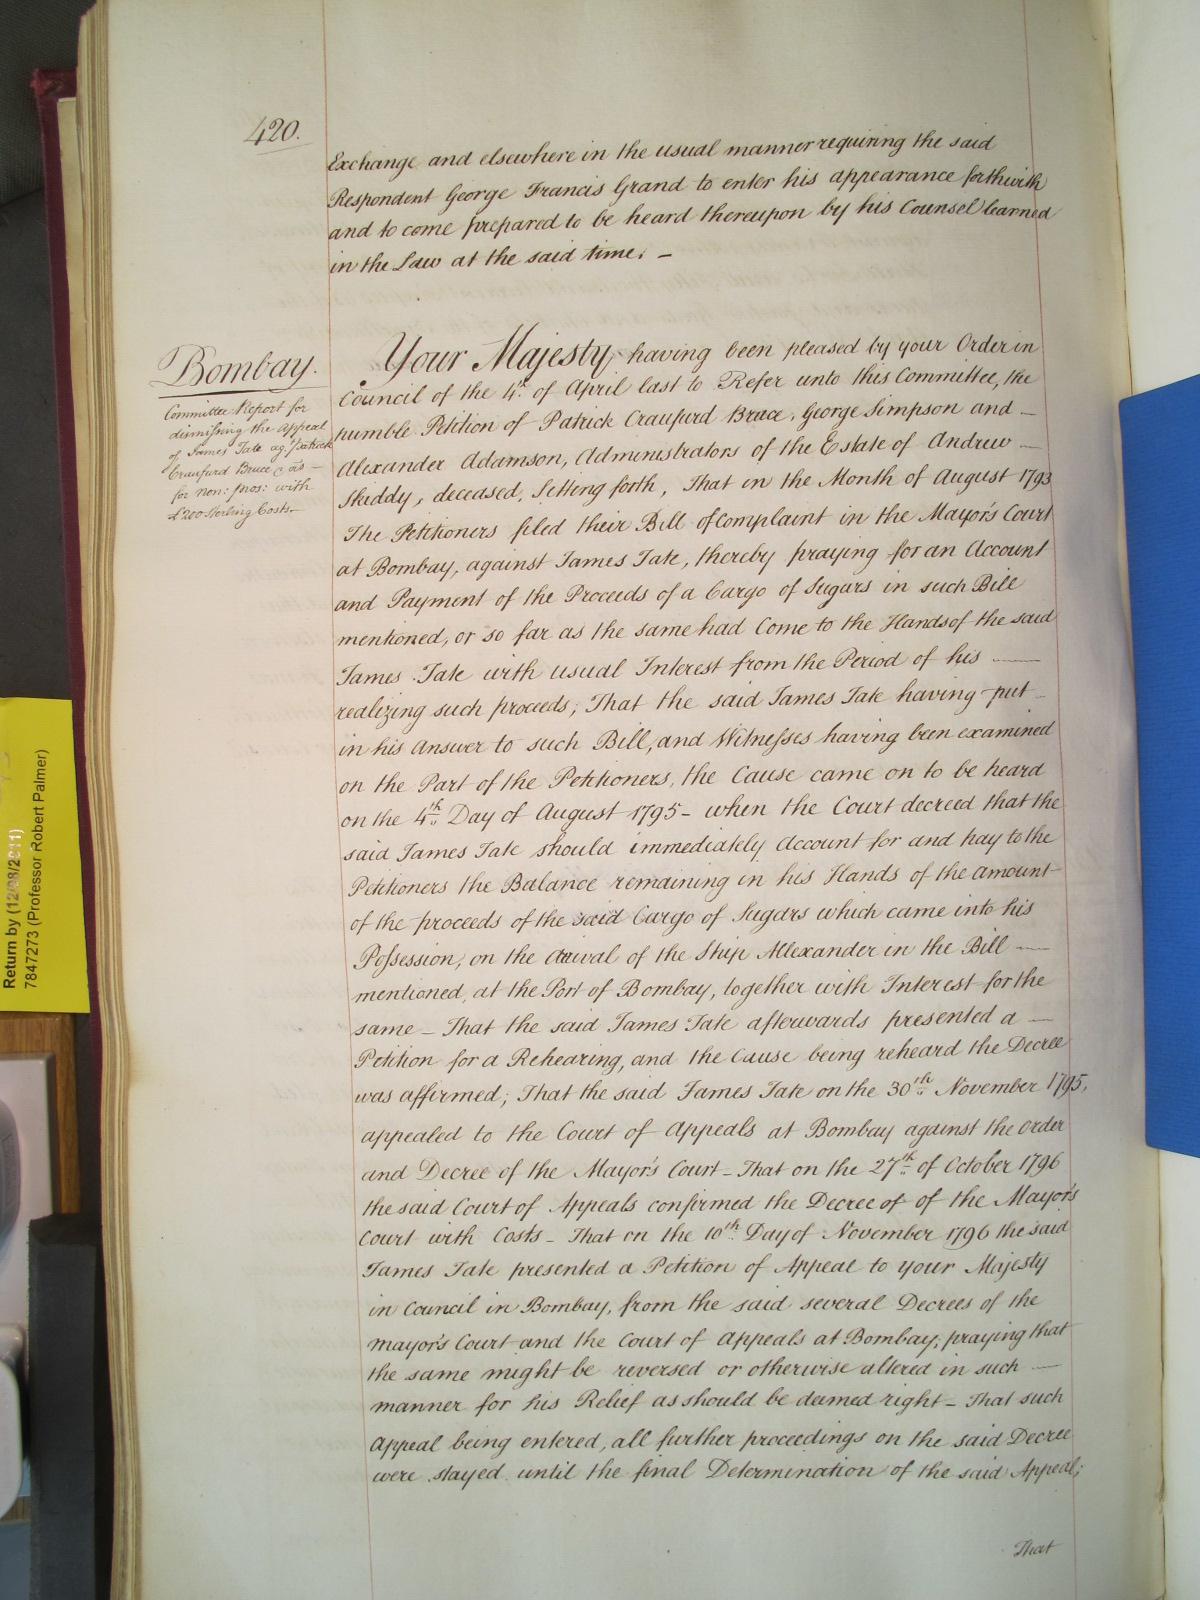 420.
Exchange and elsewhere in the usual manner requiring the said
Respondent George Francis Grand to enter his appearance forthwith
and to come prepared to be heard thereupon by his Counsel learned
in the Law at the said time. –
Bombay.
Committee Report for
dismissing the Appeal
of James Tate agt. Patrick
Craufurd Bruce & ōrs –
for non: pros: with
£200 Sterling Costs –
Your Majesty having been pleased by your Order in
Council of the 4th. of April last to Refer unto this Committee, the
humble Petition of Patrick Craufurd Bruce, George Simpson and –
Alexander Adamson, Administrators of the Estate of Andrew –
Skiddy, deceased, Setting forth, That in the Month of August 1793
The Petitioners filed their Bill of Complaint in the Mayor's Court
at Bombay, against James Tate, thereby praying for an Account
and Payment of the Proceeds of a Cargo of Sugars in such Bill
mentioned, or so far as the same had Come to the Hands of the said
James Tate with usual Interest from the Period of his –
realizing such proceeds; That the said James Tate having put –
in his Answer to such Bill, and Witnesses having been examined
on the Part of the Petitioners, the Cause came on to be heard
on the 4th. Day of August 1795 – when the Court decreed that the
said James Tate should immediately Account for and pay to the
Petitioners the Balance remaining in his Hands of the Amount –
of the proceeds of the said Cargo of Sugars which came into his
Possession, on the Arival of the Ship Allexander in the Bill –
mentioned, at the Port of Bombay, together with Interest for the
same – That the said James Tate afterwards presented a –
Petition for a Rehearing, and the Cause being reheard the Decree
was affirmed; That the said James Tate on the 30th. November 1795,
appealed to the Court of Appeals at Bombay against the Order
and Decree of the Mayor's Court – That on the 27th. of October 1796
the said Court of Appeals confirmed the Decree of of the Mayor's
Court with Costs – That on the 10th. Day of November 1796 the said
James Tate presented a Petition of Appeal to your Majesty
in Council in Bombay, from the said several Decrees of the
Mayor's Court and the Court of Appeals at Bombay; praying that
the same might be reversed or otherwise altered in such –
manner for his Relief as should be deemed right – That such
Appeal being entered, all further proceedings on the said Decree
were stayed until the final Determination of the said Appeal;
That
Return by (12/08/2011)
7847273 (Professor Robert Palmer)